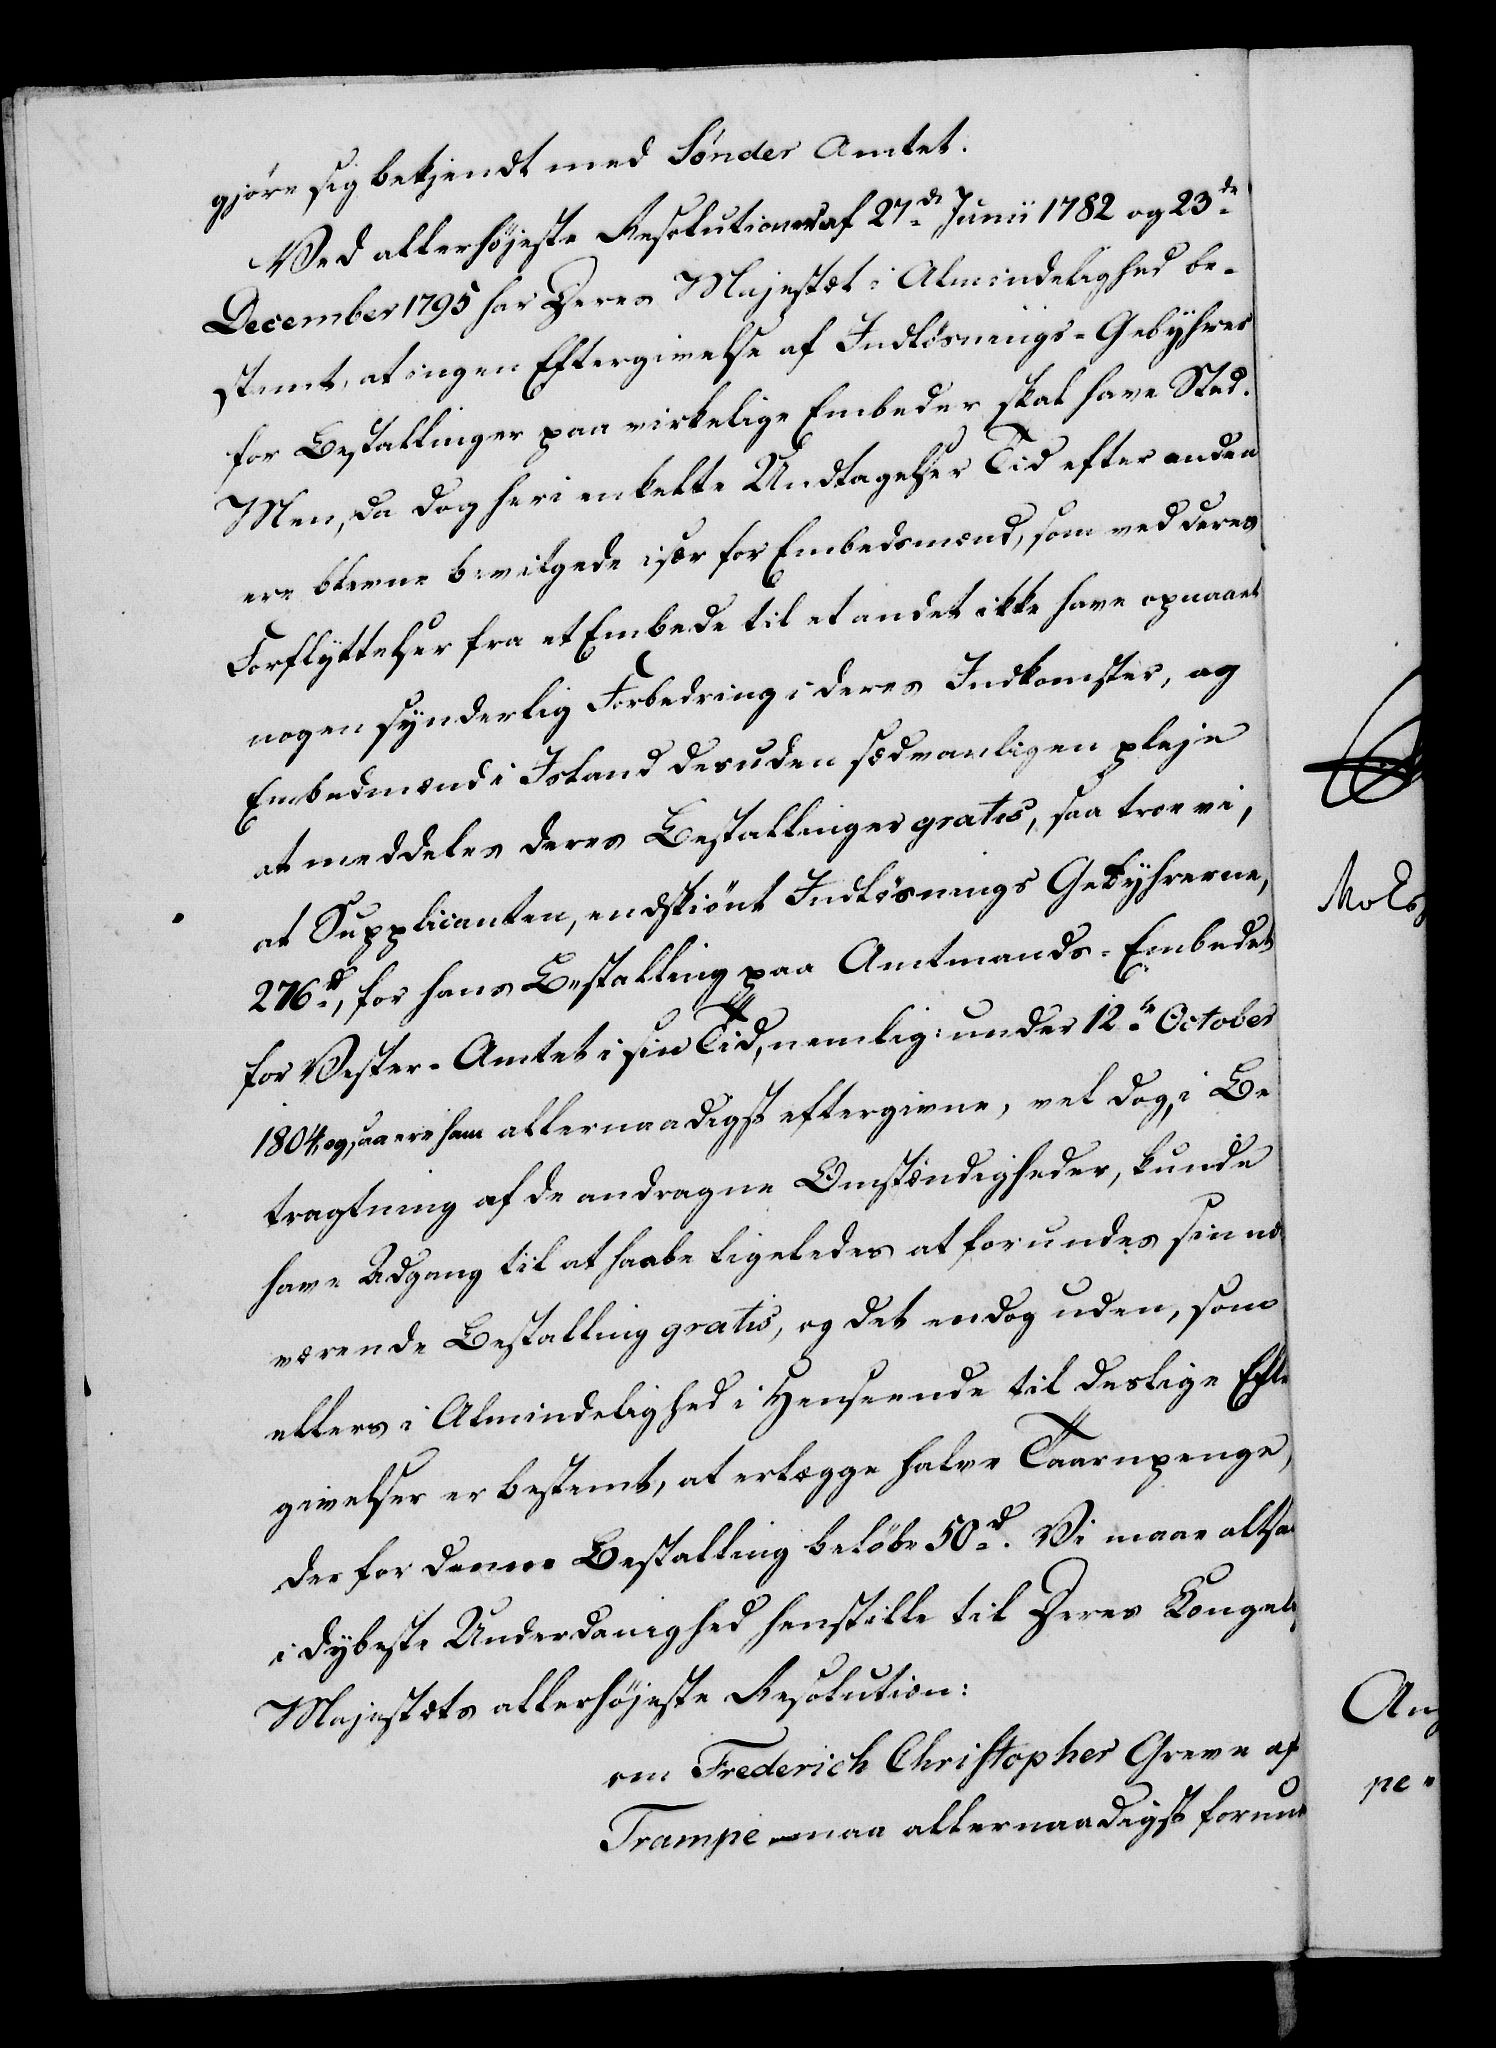 gjöre sig bekjendt med Sönder Amtet.
Ved allerhöjeste Resolutioner af 27de Junii 1782 og 23de
December 1795 har Deres Majestæt i Almindelighed be-
stemt, at ingen Eftergivelse af Indlösnings-Gebyhrer
for Bestallinger paa virkelige Embeder skal have Sted.
Men, da dog heri enkelte Undtagelser Tid efter anden
ere blevne bevilgede især for Embedsmænd, som ved deres
Forflyttelser fra et Embede til et andet ikke have opnaaet
nogen synderlig Forbedring i deres Indkomster, og
Embedmænd i Island desuden sædvanligen pleje
at meddeles deres Bestallinger gratis, saa troe vi,
at Supplicanten, endskiönt Indlösnings Gebyhrerne,
276 rd, for hans Bestalling paa Amtmands-Embedet
for Vester-Amtet i sin Tid, nemlig: under 12te October
1804, ogsaa ere ham allernaadigst eftergivne, vel dog, i Be
tragtning af de andragne Omstændigheder, kunde
have Adgang til at haabe ligeledes at forundes sin nu
værende Bestalling gratis, og det endog uden, som
ellers i Almindelighed i Henseende til deslige Efter
givelser er bestemt, at erlægge halve Taarnpenge,
der for denne Bestalling belöbe 50 rd. Vi maae altsaa
i dybeste Underdanighed henstille til Deres Kongel
Majestæts allerhöjeste Resolution:
om Frederich Christopher Greve af
Trampe maa allernaadigst forun
Ang
pe